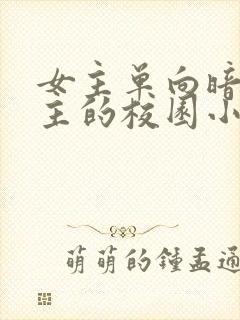 女主单向暗
主的校园小
萌萌的锺孟通